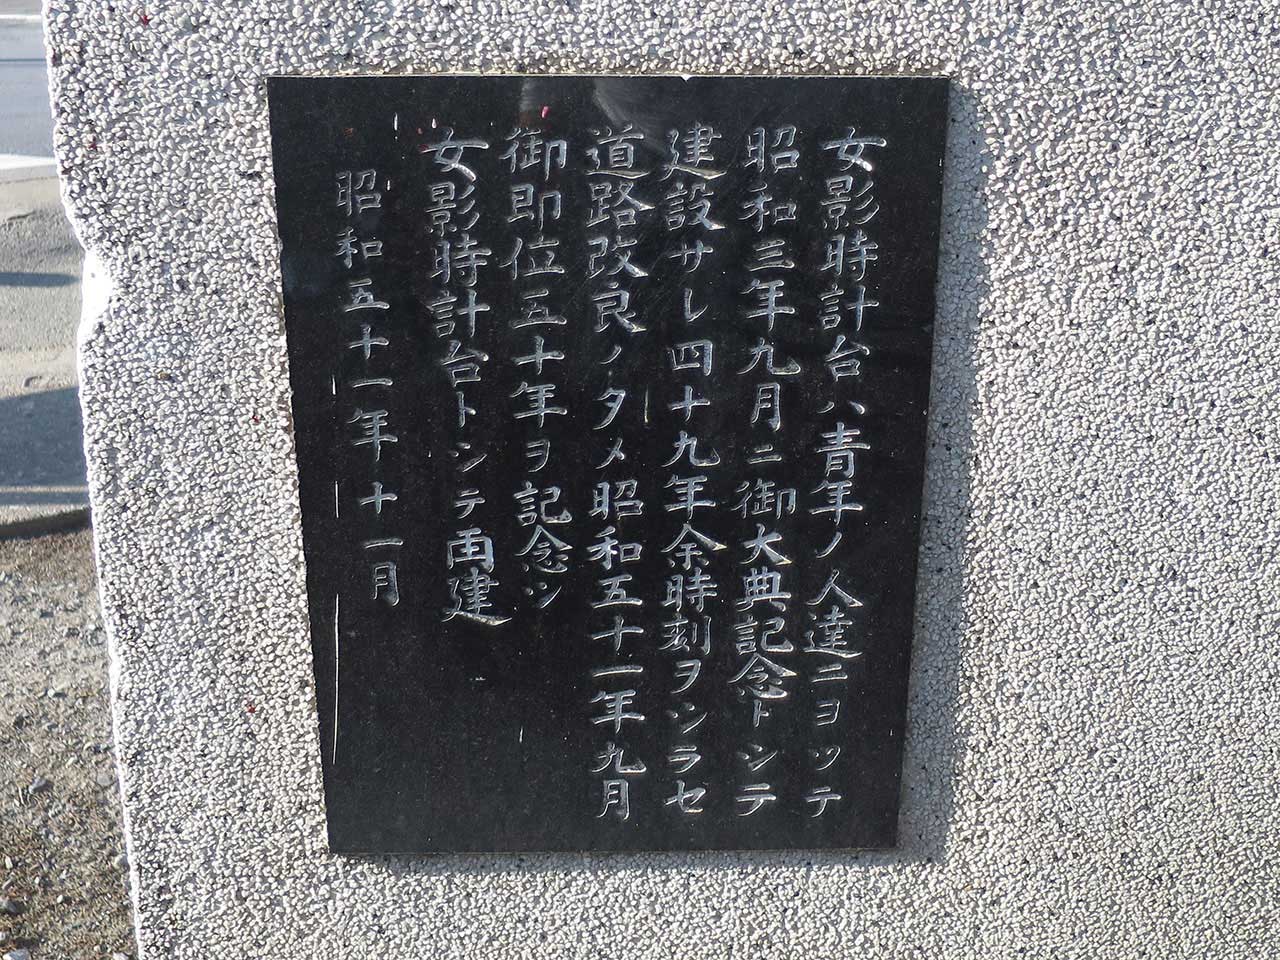 女影時計台ハ青年ノ人達ニヨッテ
昭和三年九月ニ御大典記念トシテ
建設サレ四十九年余時刻ヲシラセ
道路改良ノタメ昭和五十一年九月
御即位五十年ヲ記念シ
女影時計台トシテ再建
昭和五十一年十一月